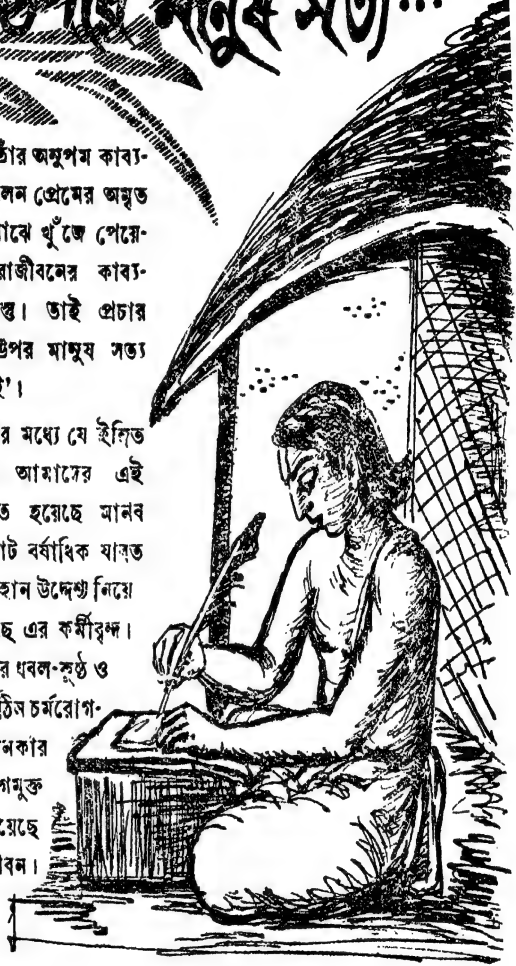 মানুষ সত্য...
তাঁর অনুপম কাব্য-
লেন প্রেমের অমৃত
মাঝে খুঁজে পেয়ে-
রাজীবনের কাব্য-
স্তু। তাই প্রচার
উপর মানুষ সত্য
ই'।
র মধ্যে যে ইঙ্গিত
আমাদের এই
ত হয়েছে মানব
াট বর্ষাধিক যাবত
হান উদ্দেশ্য নিয়ে
ছে এর কর্মীবৃন্দ।
র ধবল-কুষ্ঠ ও
ঠিন চর্মরোগ-
নকার
গমুক্ত
য়েছে
বন।